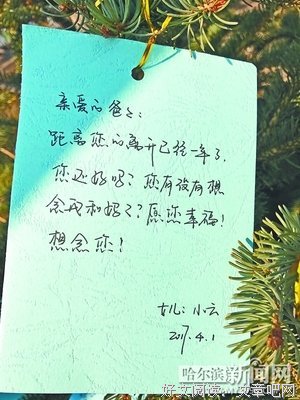 亲爱的爸爸:
距离您的离开已经一年了.
您还好吗?您有没有想
念我和妈了?愿您幸福!
想念您!
女儿:小云
2017.4.1
哈尔滨新闻网
好文阅读:文章吧网